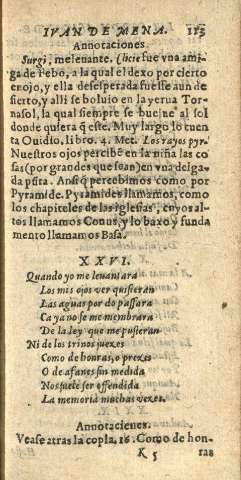 IVAN DE MENA. 115
Annotaciones.
Surgi, melenante. Clicie fue vna ami-
ga de Febo, a la qual el dexo por cierto
erojo, y ella desesperada fuesse a vn de
sierto, y alli se boluio en la yerua Tor-
nasol, la qual siempre se buelue al sol
donde quiera q̃ este. Muy largo lo cuen
ta Ouidio, libro. 4. Met. Los rayos pyr.
Nuestros ojos perciben en la niña las co
sas (por grandes que sean) en vna delga-
da pũta. Ansi q̃ percebimos como por
Pyramide. Pyramides llamamos, como
los chapiteles de las iglesias, cuyos al-
tos llamamos Conus, y lo baxo y funda
mento llamamos Basa.
XXVI.
Quando yo me leuantara
Los mis ojos ver quisieran
Las aguas por do passara
Ca ya no se me membrara
De la ley que me pusieran
Ni de los trinos juezes
Como de honras, o prezes
O de afanes sin medida
No suele ser offendida
La memoria muchas vezes.
Annotaciones.
Vease atras la copla. 16. Como de hon-
K 5 128